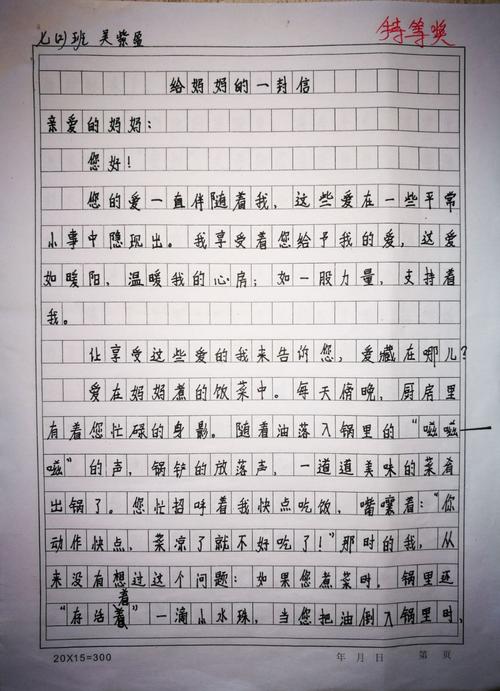 七(4)班 吴紫盈
特等奖
给妈妈的一封信
亲爱的妈妈：
您好！
您的爱一直伴随着我，这些爱在一些平常
小事中隐现出。我享受着您给予我的爱，这爱
如暖阳，温暖我的心房；如一股力量，支持着
我。
让享受这些爱的我来告诉您，爱藏在哪儿？
爱在妈妈煮的饭菜中。每天傍晚，厨房里
有着您忙碌的身影。随着油落入锅里的“嗞嗞——
嗞”的声，锅铲的放落声，一道道美味的菜肴
出锅了。您忙招呼着我快点吃饭，嘴嚷着：“你
动作快点，菜凉了就不好吃了！”那时的我，从
来没有想过这个问题：如果您煮菜时，锅里还
“存活着”一滴小水珠，当您把油倒入锅里时，
20X15=300
年 月 日 第 页